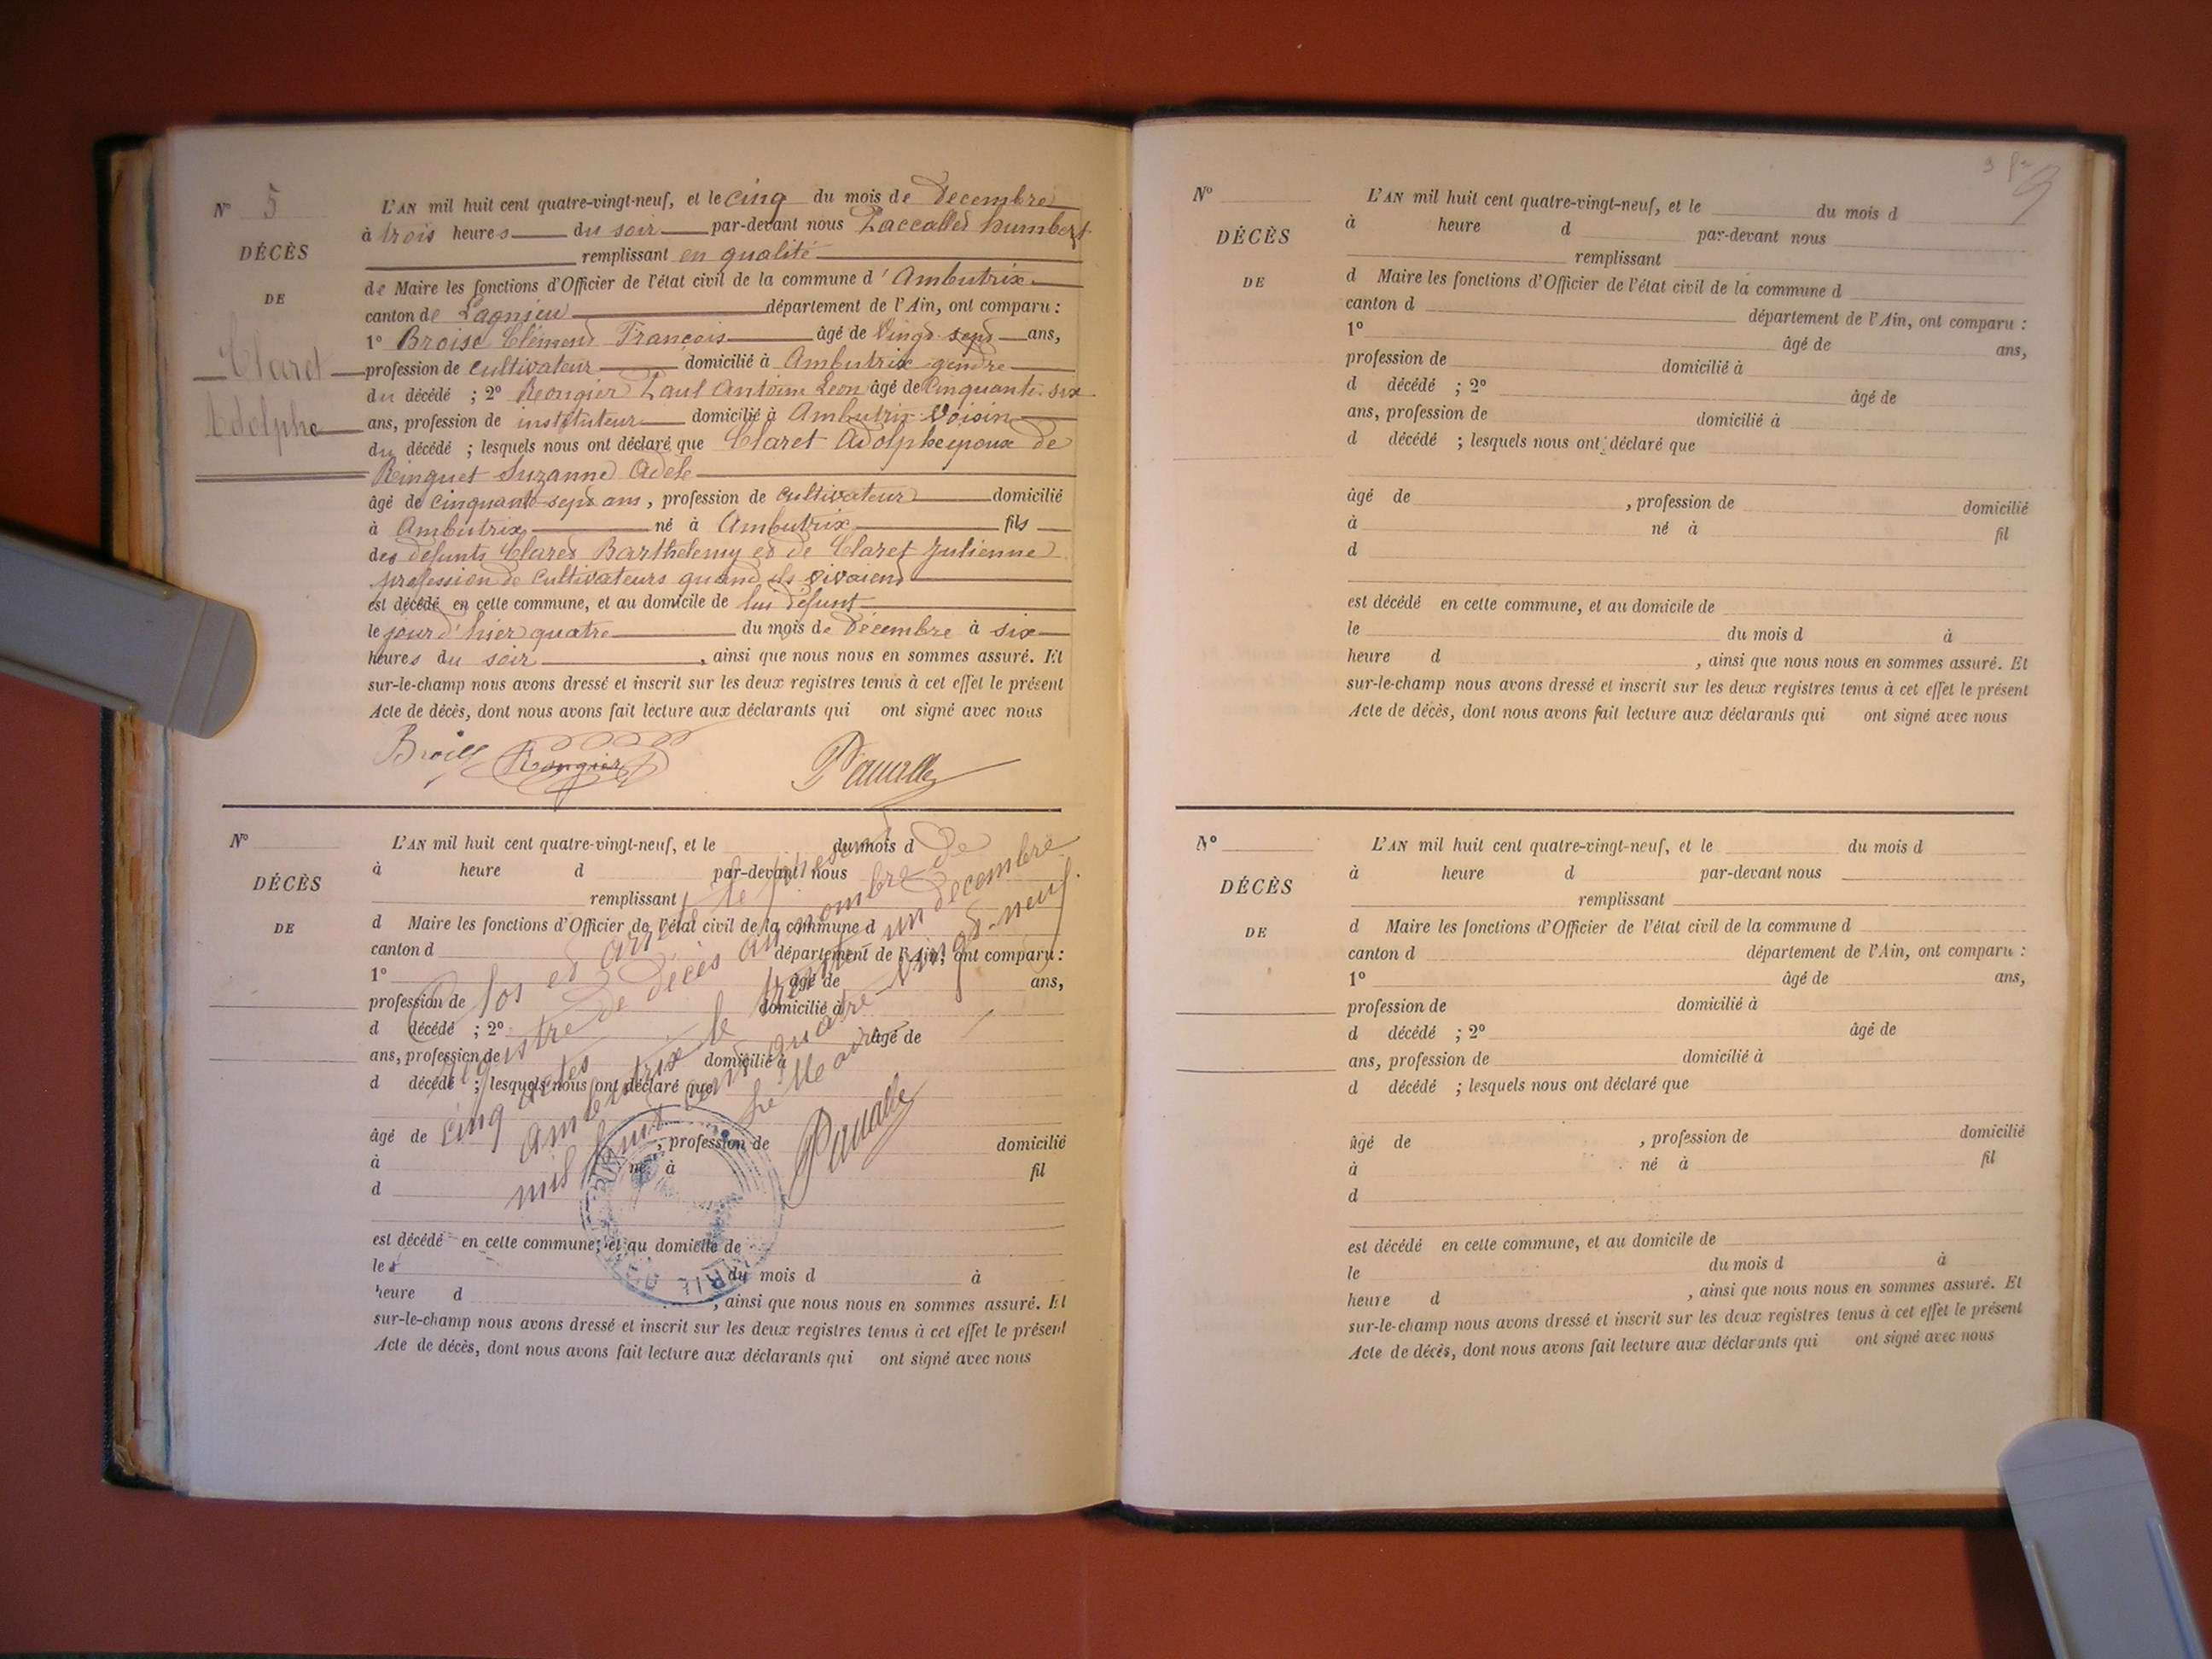 N° 5
DÉCÈS
DE
Claret
Adolphe
L'AN mil huit cent quatre-vingt-neuf, et le cinq du mois de Décembre
à trois heures du soir par-devant nous humbert
remplissant en qualité
de Maire les fonctions d'Officier de l'état civil de la commune d'Ambutrix
canton de Lagnieu département de l'Ain, ont comparu :
1° Broise Clément François âgé de Vingt sept ans,
profession de cultivateur domicilié à Ambutrix gendre
du décédé ; 2° Rongier Paul Antoine Leon âgé de Cinquante six
ans, profession de instituteur domicilié à Ambutrix Voisin
du décédé ; lesquels nous ont déclaré que Claret Adolphe epoux de
Ringuet Suzanne Adele
âgé de cinquante-sept ans, profession de cultivateur domicilié
à Ambutrix né à Ambutrix fils
des défunts Claret Barthelemy et de Claret Julienne
profession de Cultivateurs quand ils vivaient
est décédé en cette commune, et au domicile de lui défunt
le jour d'hier quatre du mois de Décembre à six
heures du soir, ainsi que nous nous en sommes assuré. Et
sur-le-champ nous avons dressé et inscrit sur les deux registres tenus à cet effet le présent
Acte de décès, dont nous avons fait lecture aux déclarants qui ont signé avec nous
Rongier
N°
DÉCÈS
DE
L'AN mil huit cent quatre-vingt-neuf, et le du mois d
à heure d par-devant nous
remplissant
d Maire les fonctions d'Officier de l'état civil de la commune d
canton d département de l'Ain, ont comparu :
1° âgé de ans,
profession de domicilié à
d décédé ; 2° âgé de
ans, profession de domicilié à
d décédé ; lesquels nous ont déclaré que
âgé de , profession de domicilié
à né à fil
d
est décédé en cette commune, et au domicile de
le du mois d à
heure d , ainsi que nous nous en sommes assuré. Et
sur-le-champ nous avons dressé et inscrit sur les deux registres tenus à cet effet le présent
Acte de décès, dont nous avons fait lecture aux déclarants qui ont signé avec nous
Clos et arrêté le présent
registre de décès au nombre de
cinq actes
Ambutrix le trente un décembre
mil huit cent quatre-vingt-neuf.
Le Maire
N°
DÉCÈS
DE
L'AN mil huit cent quatre-vingt-neuf, et le du mois d
à heure d par-devant nous
remplissant
d Maire les fonctions d'Officier de l'état civil de la commune d
canton d département de l'Ain, ont comparu :
1° âgé de ans,
profession de domicilié à
d décédé ; 2° âgé de
ans, profession de domicilié à
d décédé ; lesquels nous ont déclaré que
âgé de , profession de domicilié
à né à fil
d
est décédé en cette commune, et au domicile de
le du mois d à
heure d , ainsi que nous nous en sommes assuré. Et
sur-le-champ nous avons dressé et inscrit sur les deux registres tenus à cet effet le présent
Acte de décès, dont nous avons fait lecture aux déclarants qui ont signé avec nous
N°
DÉCÈS
DE
L'AN mil huit cent quatre-vingt-neuf, et le du mois d
à heure d par-devant nous
remplissant
d Maire les fonctions d'Officier de l'état civil de la commune d
canton d département de l'Ain, ont comparu :
1° âgé de ans,
profession de domicilié à
d décédé ; 2° âgé de
ans, profession de domicilié à
d décédé ; lesquels nous ont déclaré que
âgé de , profession de domicilié
à né à fil
d
est décédé en cette commune, et au domicile de
le du mois d à
heure d , ainsi que nous nous en sommes assuré. Et
sur-le-champ nous avons dressé et inscrit sur les deux registres tenus à cet effet le présent
Acte de décès, dont nous avons fait lecture aux déclarants qui ont signé avec nous